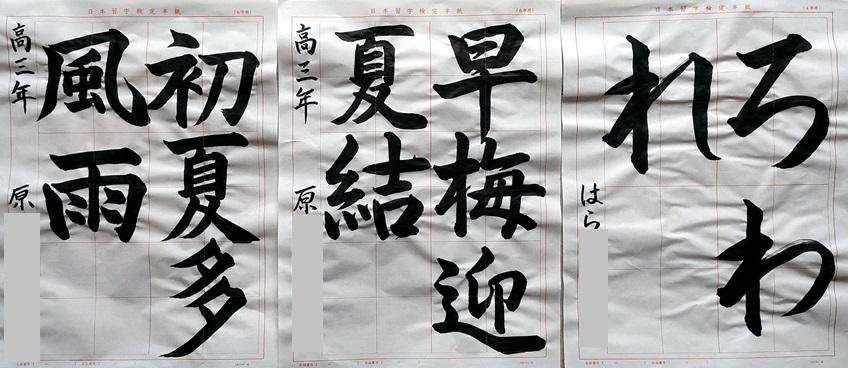 日本習字検定半紙
初夏多
風雨
高三年 原
日本習字検定半紙
早梅迎
夏結
高三年 原
日本習字検定半紙
ろわ
れ
はら